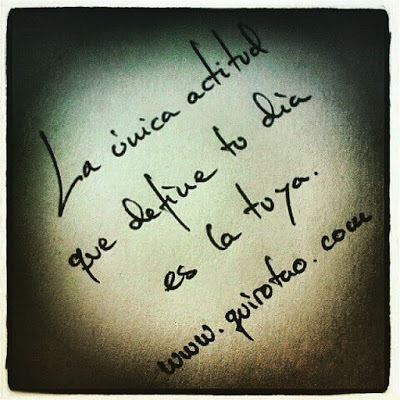 La única actitud
que define tu día
es la tuya.
www.quirotao.com